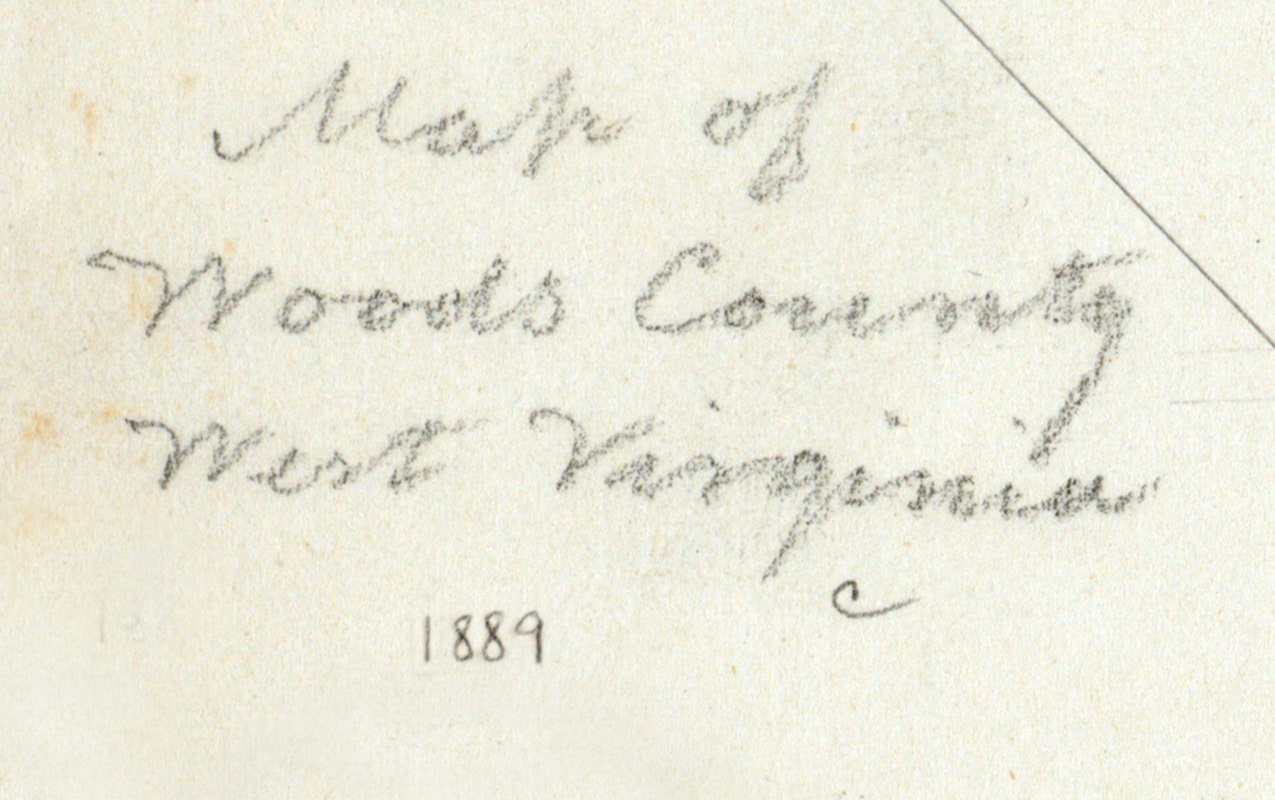 Map of
Woods County
West Virginia
c
1889